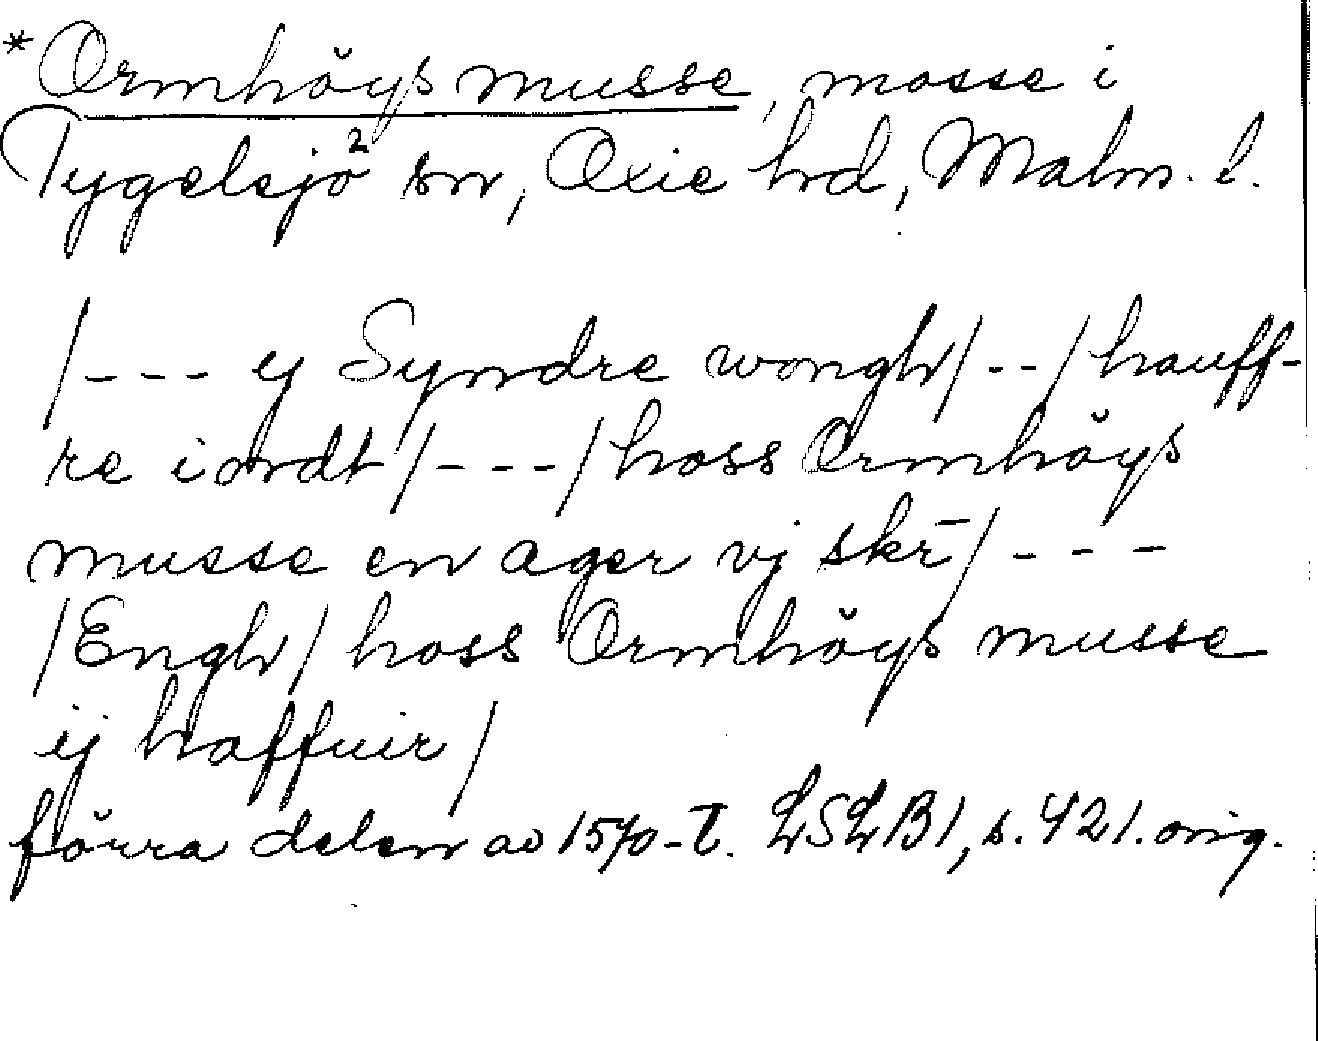 *Ormhöys musse, mosse i
Tygelsjö² sn, Oxie hd, Malm. l.
/--- ij Syndre wongh/--/hauff-
re iordt/---/hoss Ormhöys
musse en ager vj skr̄/---
/Engh/hoss Ormhöys musse
ij haffuir/
förra delen av 1570-t. LSLB1, s. 421. orig.